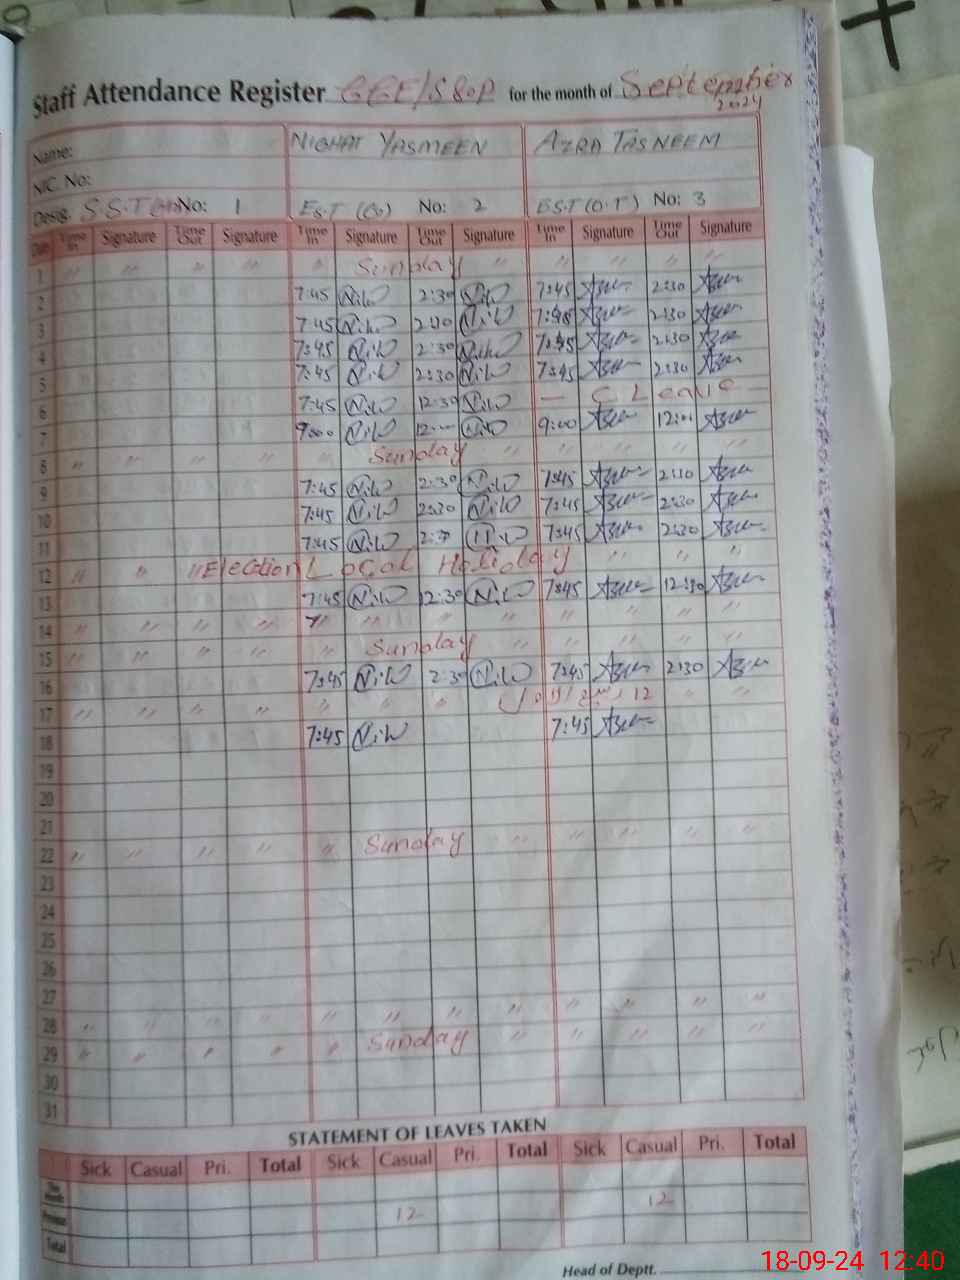 Staff Attendance Register GGE/S 80P for the month of September
2024
Name: NIGHAT YASMEEN AZRA TASNEEM
NIC. No:
Desig. S.S.T No: 1 E.S.T No: 2 E.S.T (O.T) No: 3
Date Time In Signature Time Out Signature Time In Signature Time Out Signature Time In Signature Time Out Signature
1 " " " " " Sunday " " " " "
2 7:45 2:30 7:45 2:30
3 7:45 2:30 7:45 2:30
4 7:45 2:30 7:45 2:30
5 7:45 2:30 7:45 2:30
6 7:45 12:30 — C Leave —
7 9:00 12:00 9:00 12:00
8 " " " " Sunday " " " " "
9 7:45 2:30 7:45 2:30
10 7:45 2:30 7:45 2:30
11 7:45 2:30 7:45 2:30
12 " " " Election Local Holiday " " "
13 7:45 12:30 7:45 12:30
14 " " " " " " " " " " " "
15 " " " " Sunday " " " " "
16 7:45 2:30 7:45 2:30
17 " " " " " " " 12 " "
18 7:45 7:45
19
20
21
22 " " " " " Sunday " " " " "
23
24
25
26
27
28 " " " " " " " " " " " "
29 " " " " " Sunday " " " " "
30
31
STATEMENT OF LEAVES TAKEN
Sick Casual Pri. Total Sick Casual Pri. Total Sick Casual Pri. Total
This Month
Previous 12 12
Total
Head of Deptt.
18-09-24 12:40